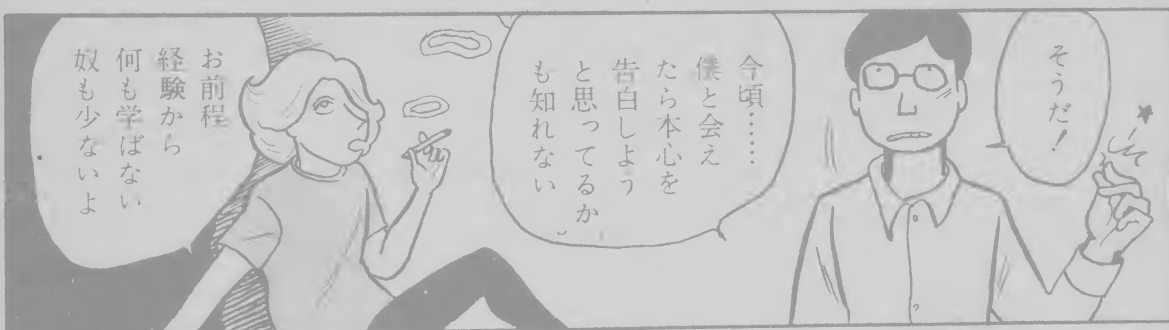 そうだ!
今頃……
僕と会え
たら本心を
告白しよう
と思ってるか
も知れない
お前程
経験から
何も学ばない
奴も少ないよ